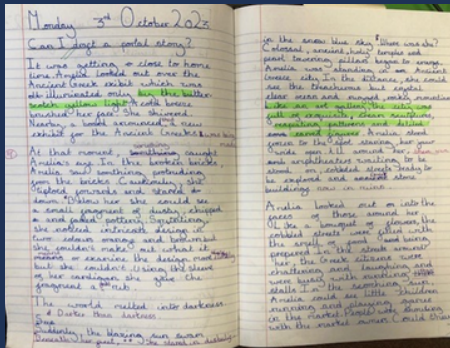 Monday 3rd October 2023
Can I draft a portal story?
It was getting close to home
time. Amelia looked out over the
Ancient Greek exhibit which was
illuminated only by the butter
scotch yellow light. A cold breeze
brushed her face. She shivered.
Nearby, a world announced new
exhibit for the Ancient Greeks was being
At that moment, something caught
Amelia's eye. In the broken bricks,
Amelia saw something protruding
from the bricks. Cautiously, she
tiptoed forward and stared
down. Below her she could see
a small fragment of dusty, chipped
and faded pottery. Squinting,
she noticed intricate design in
two colours orange and brown but
she couldn't make out what it
or examine the design more
but she couldn't. Using the sleeve
of her cardigan, she gave the
fragment a rub.
The world melted into darkness
Darker than darkness
Suddenly, the blazing sun swam
Beneath her feet, She stared in disbelief
in the snow blue sky. Where was she?
Colossal, ancient, holy temples and
pearl towering pillars began to emerge.
Amelia was standing in an Ancient
Greek city. In the distance, she could
see the thunderous but crystal
clear seas and
Like an art gallery, the city was
full of exquisite, clean sculptures,
sculpting patterns and delicate
carved figures. Amelia stood
frozen to the spot staring, her jaw
wide open. All around her,
amphitheatres waiting to be
stood on, cobbled streets ready to
be explored and stone
buildings now in mine.
Amelia looked out on into the
faces of those around her.
Like a bouquet of flowers, the
cobbled streets were filled with
the smell of food being
prepared. In the streets around
her, the Greek citizens were
chattering and laughing and
were busy with
stalls. In the scorching sun,
Amelia could see little children
running and playing games
in the market. People were
with the market owners. Could